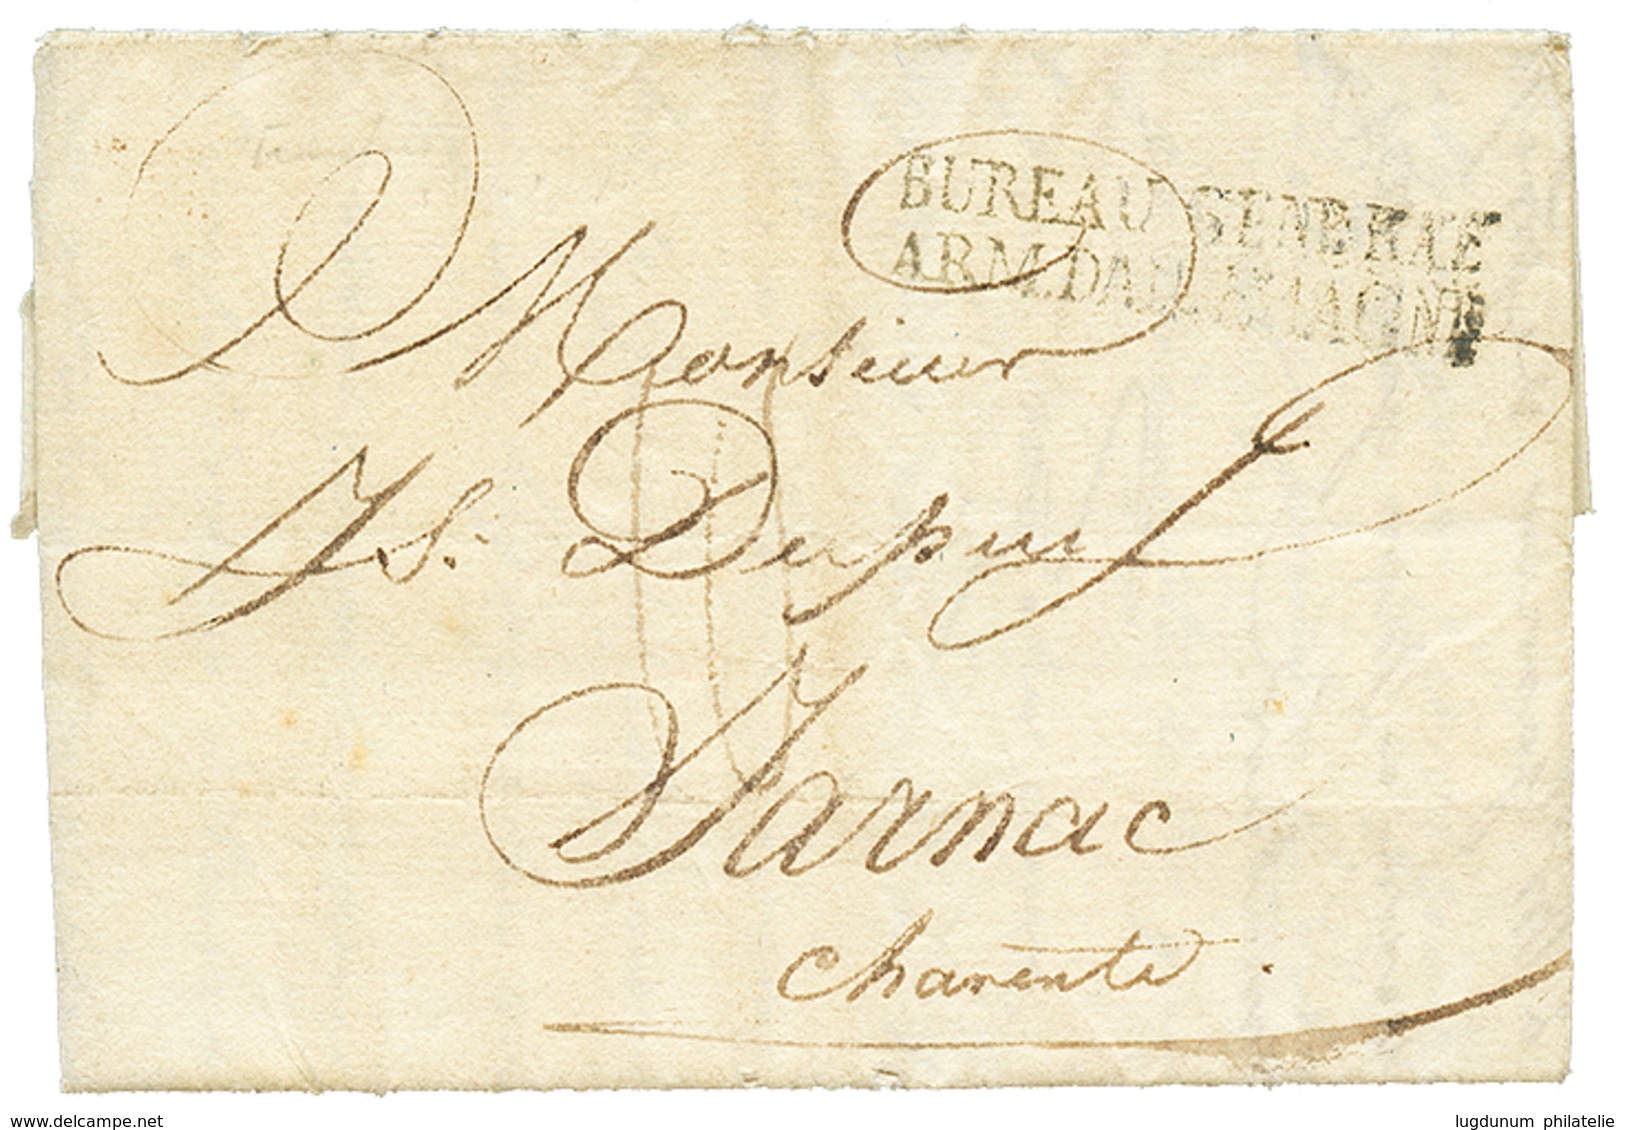 BUREAU GENERAL
ARM.DALLEMAGNE
Monsieur
Js. Dupuy
Jarnac
Charente.
www.delcampe.net
lugdunum philatelie